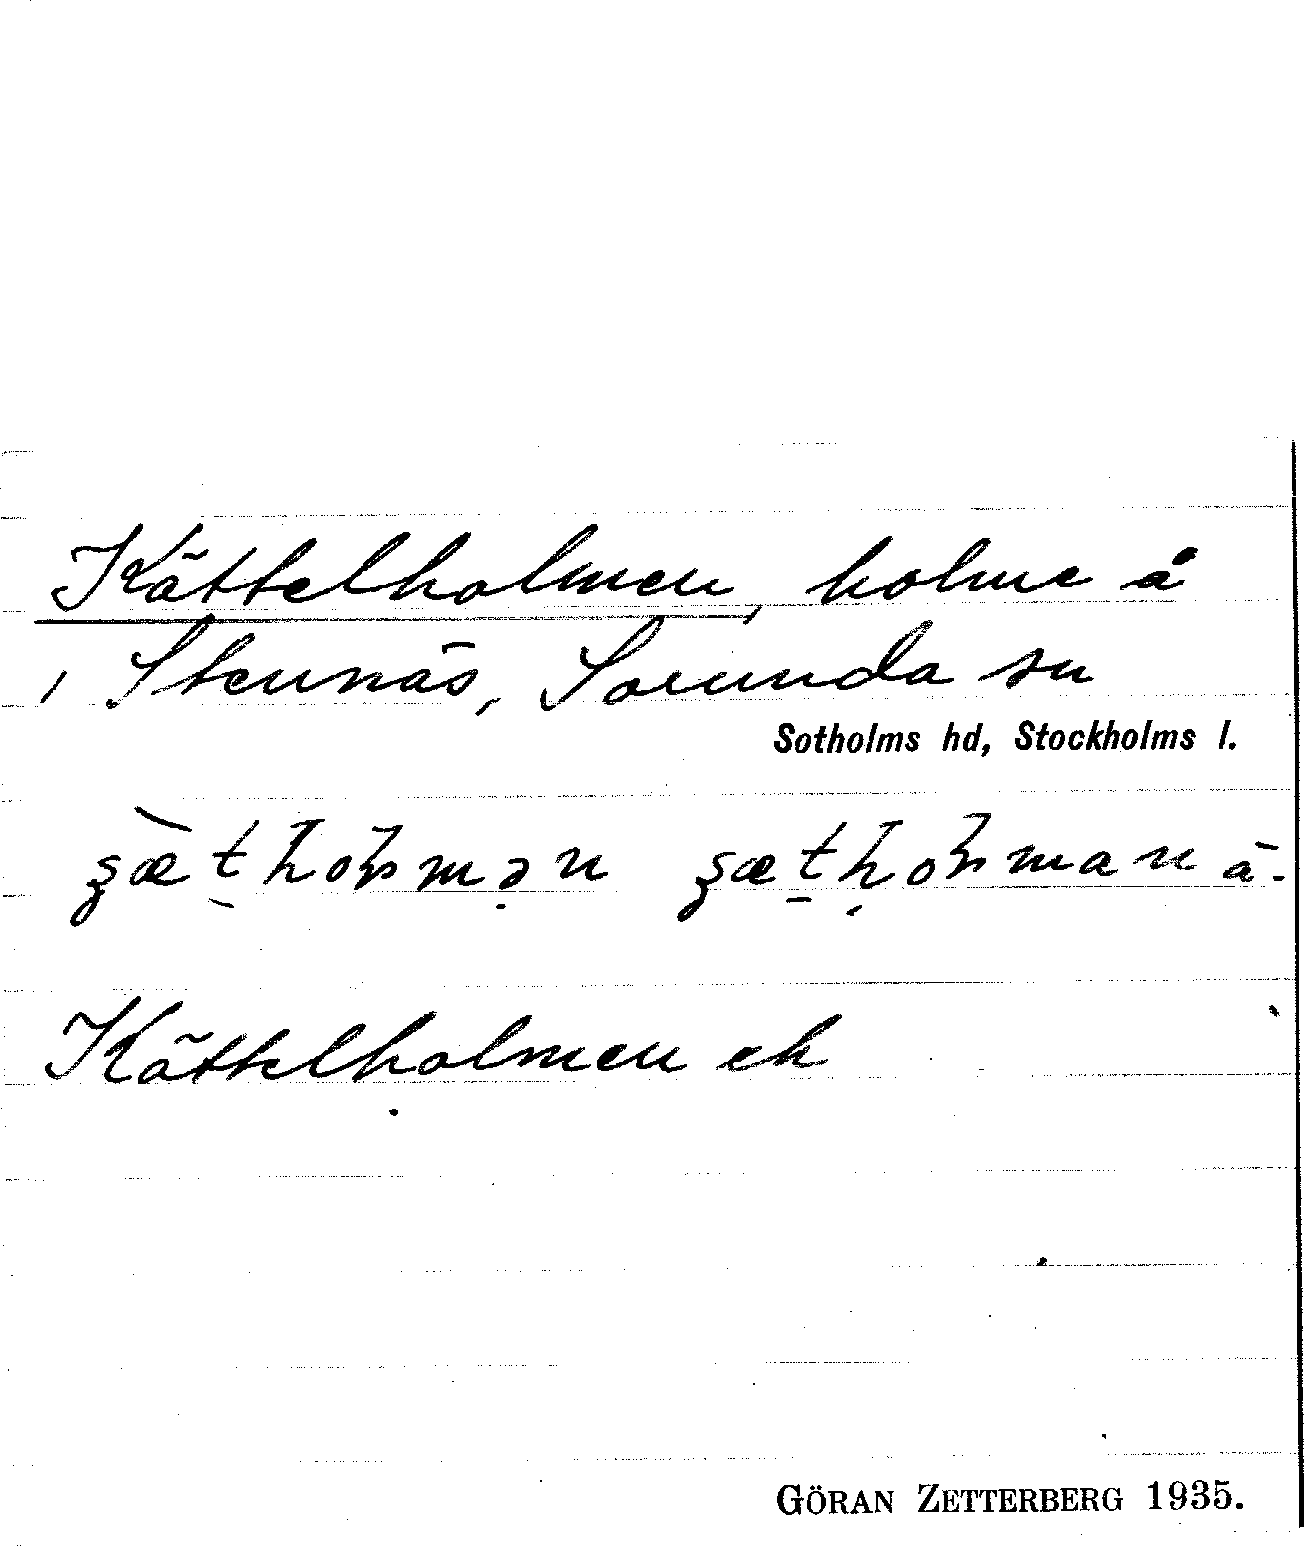 Kättelholmen, holme å
, Stennäs, Sorunda sn
Sotholms hd, Stockholms l.
Kättelholmen ek
GÖRAN ZETTERBERG 1935.